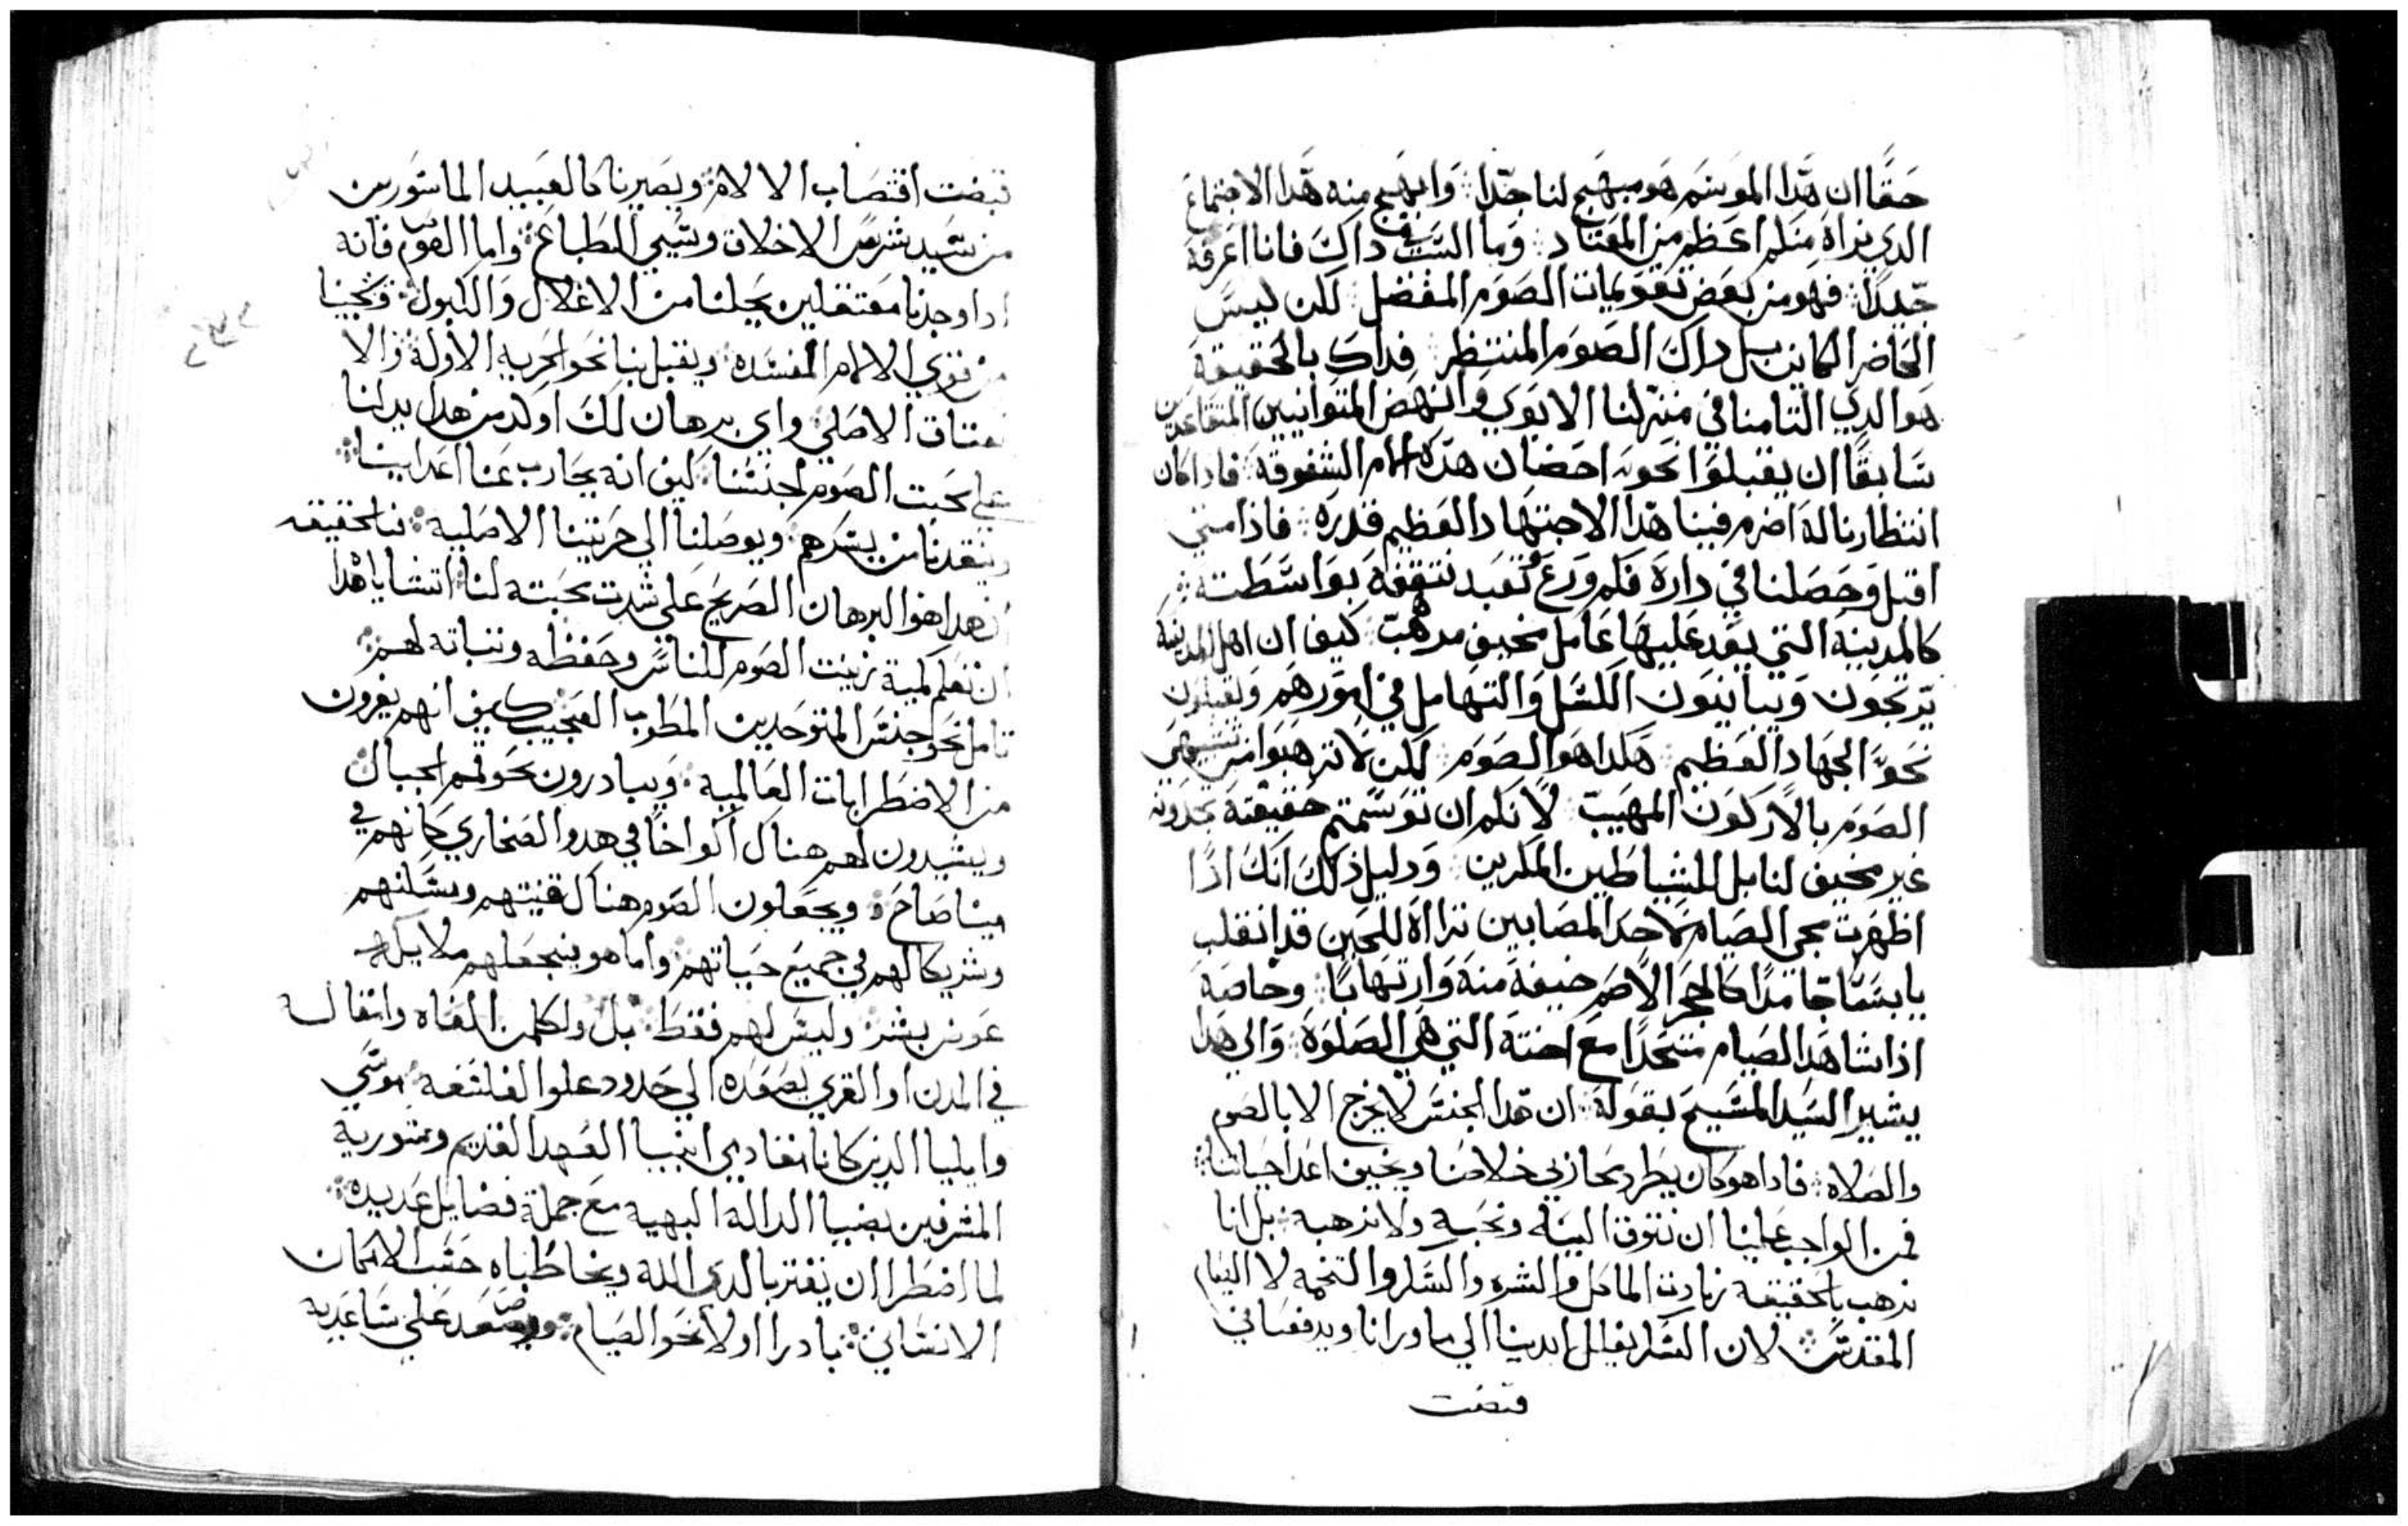 حقًا ان هذا الموسم هو مبهج لنا جدًا وابهج منه هذا الاجتماع
الدي نراه منكم اعظم من المعتاد وما السبب في داك فانا اعرفه
جيدًا فهو من بعض تقويمات الصوم المفضل لكن ليس
الحاضر الكاين بل داك الصوم المنتظر فداك بالحقيقة
هو الدي التامنا في منزلنا الابوي وانهض المتوانيين المتقاعدين
سابقًا ان يقبلوا نحوه احضان هذه الام الشفوقة فادا كان
انتظارنا له اضرم فينا هذا الاجتهاد العظيم قدره فاذا متي
اقبل وحصلنا في داره فكم ورع وتعبد نتقفه بواسطته
كالمدينة التي يفد عليها عامل مخيف مرهب كيف ان اهل المدينة
يرتجون ويباينون الكسل والتهامل في امورهم ويقبلون
نحو الجهاد العظيم هكدا هو الصوم لكن لا ترهبوا من تشبهي
الصوم بالاركون المهيب لانكم ان توسمتم حقيقته تجدونه
غير مخيف لنا بل للشياطين الماكرين ودليل ذلك انك اذا
اظهرت مجي الصيام لاحد المصابين تراه للحين قد انقلب
يابسًا جامدًا كالحجر الاصم خيفة منه وارتهابًا وخاصة
اذا شاهد الصيام متحدًا مع اخته التي هي الصلوة والي هدا
يشير السيد المسيح بقوله ان هدا الجنس لا يخرج الا بالصوم
والصلاه فادا هو كان يطرد محاربي خلاصنا ويخيف اعدا حياتنا
فمن الواجب علينا ان نتوق اليه ونحبه ولا نرهبه بل انا
نرهب بالحقيقة زيادت الماكل والشره والسكر والتخمه لا الصيام
المقدس لان السكر يغلل ايدينا الي ما ورانا ويدفعنا في
قبضت
قبضت اقتصاب الالام ويصيرنا كالعبيد الماسورين
من سيد شرس الاخلاق وسيي الطباع واما الصوم فانه
ادا وجدنا معتقلين يحلنا من الاغلال والكبول وينجينا
من قوي الالام المفسده ويقبل بنا نحو الحريه الاولة والا
نعتاق الاصلي واي برهان لك اوكد من هدا يدلنا
علي محبت الصوم لجنسنا كيف انه يحارب عنا اعداينا
وينقدنا من يسرهم ويوصلنا الي حريتنا الاصلية فبالحقيقه
ان هدا هو البرهان الصريح علي شدت محبته لنا اتشا يا هدا
ان تعلم كمية زينت الصوم للناس وحفظه وثباته لهم
تامل نحو اجنس المتوحدين المطوب العجيب كيف انهم يفرون
من الاضطرابات العالمية ويبادرون نحو قمم الجبال
ويشيدون لهم هناك اكواخًا في هدو الصحاري كانهم في
مينا صاحٍ ويجعلون الصوم هناك قنيتهم وسكنهم
وشريكا لهم في جميع حياتهم واما هو فيجعلهم ملايكه
عوض بشر وليس لهم فقط بل ولكلمن الفاه واتقا له
في المدن او القري يصعده الي حدود علوا الفلسفة موسي
وايليا الذين كانا نفادي انبيا العهد القديم ومنورية
المشرفين بضيا الدالة البهيه مع جملة فضايل عديده
لما اضطرا ان يقتربا لدي الله ويخاطباه حسب الامكان
الانساني بادرا اولا نحو الصيام وصعد علي ساعديه